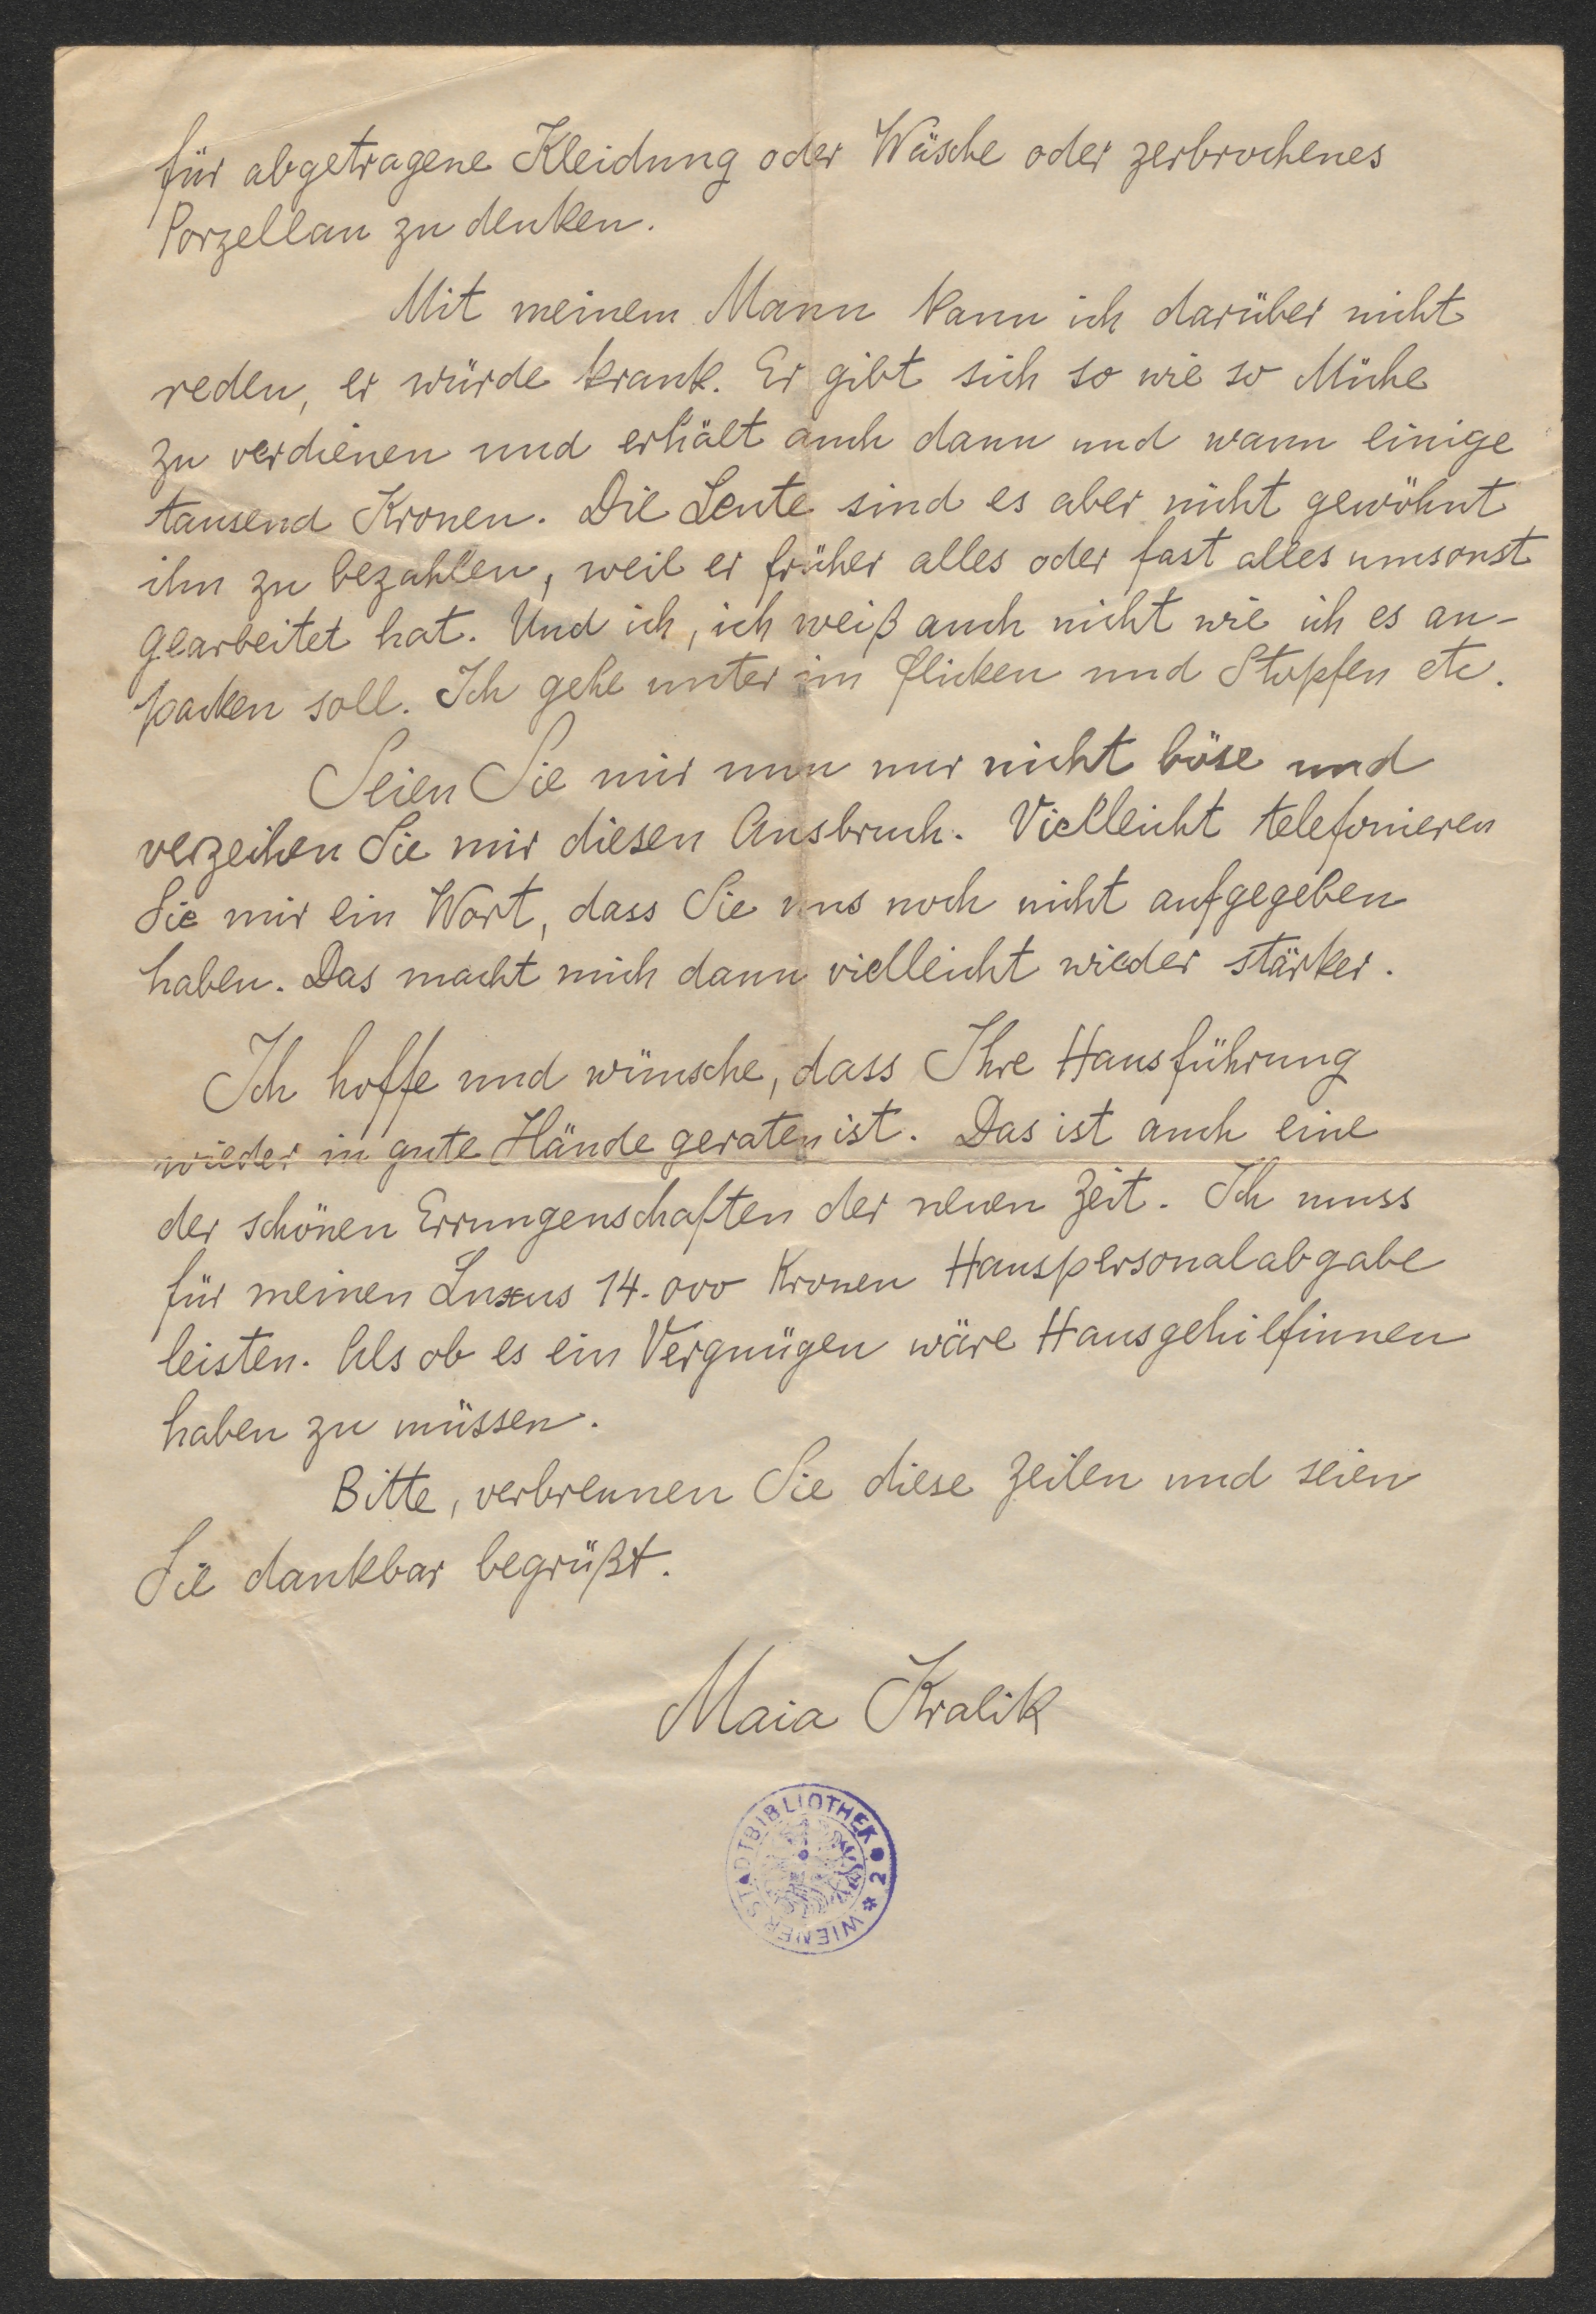 für abgetragene Kleidung oder Wäsche oder zerbrochenes
Porzellan zu denken.
Mit meinem Mann kann ich darüber nicht
reden, er würde krank. Er gibt sich so wie so Mühe
zu verdienen und erhält auch dann und wann einige
tausend Kronen. Die Leute sind es aber nicht gewöhnt
ihn zu bezahlen, weil er früher alles oder fast alles umsonst
gearbeitet hat. Und ich, ich weiß auch nicht wie ich es an-
packen soll. Ich gehe unter im flicken und Stopfen etc.
Seien Sie mir nun nur nicht böse und
verzeihen Sie mir diesen Ausbruch. Vielleicht telefonieren
Sie mir ein Wort, dass Sie uns noch nicht aufgegeben
haben. Das macht mich dann vielleicht wieder stärker.
Ich hoffe und wünsche, dass Ihre Hausführung
wieder in gute Hände geraten ist. Das ist auch eine
der schönen Errungenschaften der neuen Zeit. Ich muss
für meinen Luxus 14.000 Kronen Hauspersonalabgabe
leisten. Als ob es ein Vergnügen wäre Hausgehilfinnen
haben zu müssen.
Bitte, verbrennen Sie diese Zeilen und seien
Sie dankbar begrüßt.
Maia Kralik
WIENER STADTBIBLIOTHEK 2